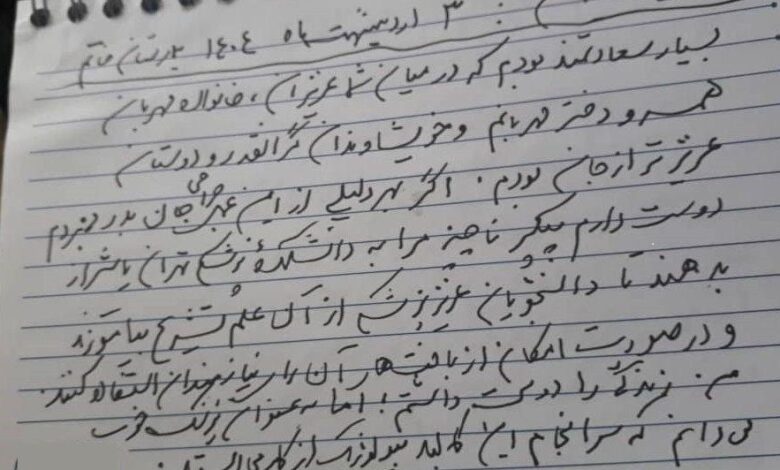 ۳ اردیبهشت ماه ۱۴۰۴ بیمارستان خاتم
بسیار سعادتمند بودم که در میان شما عزیزان، خانواده مهربان
همسر و دختر مهربانم و خویشاوندان گرانقدر و دوستان
عزیزتر از جان بودم. اگر بهر دلیلی از این عمل جراحی جان بدر نبردم
دوست دارم پیکر ناچیز مرا به دانشکدهٔ پزشکی تهران یا شیراز
بدهند تا دانشجویان عزیز پزشکی از آن علم تشریح بیاموزند
و در صورت امکان از بافت‌های آن برای نیازمندان استفاده کنند.
من زندگی را دوست داشتم! اما به عنوان پزشک خوب
می دانم که سرانجام این کالبد بیولوژیک از کار می